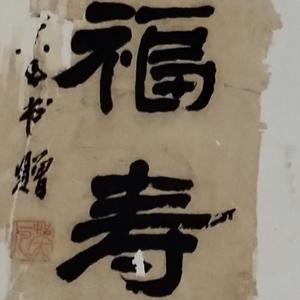 福寿
书赠